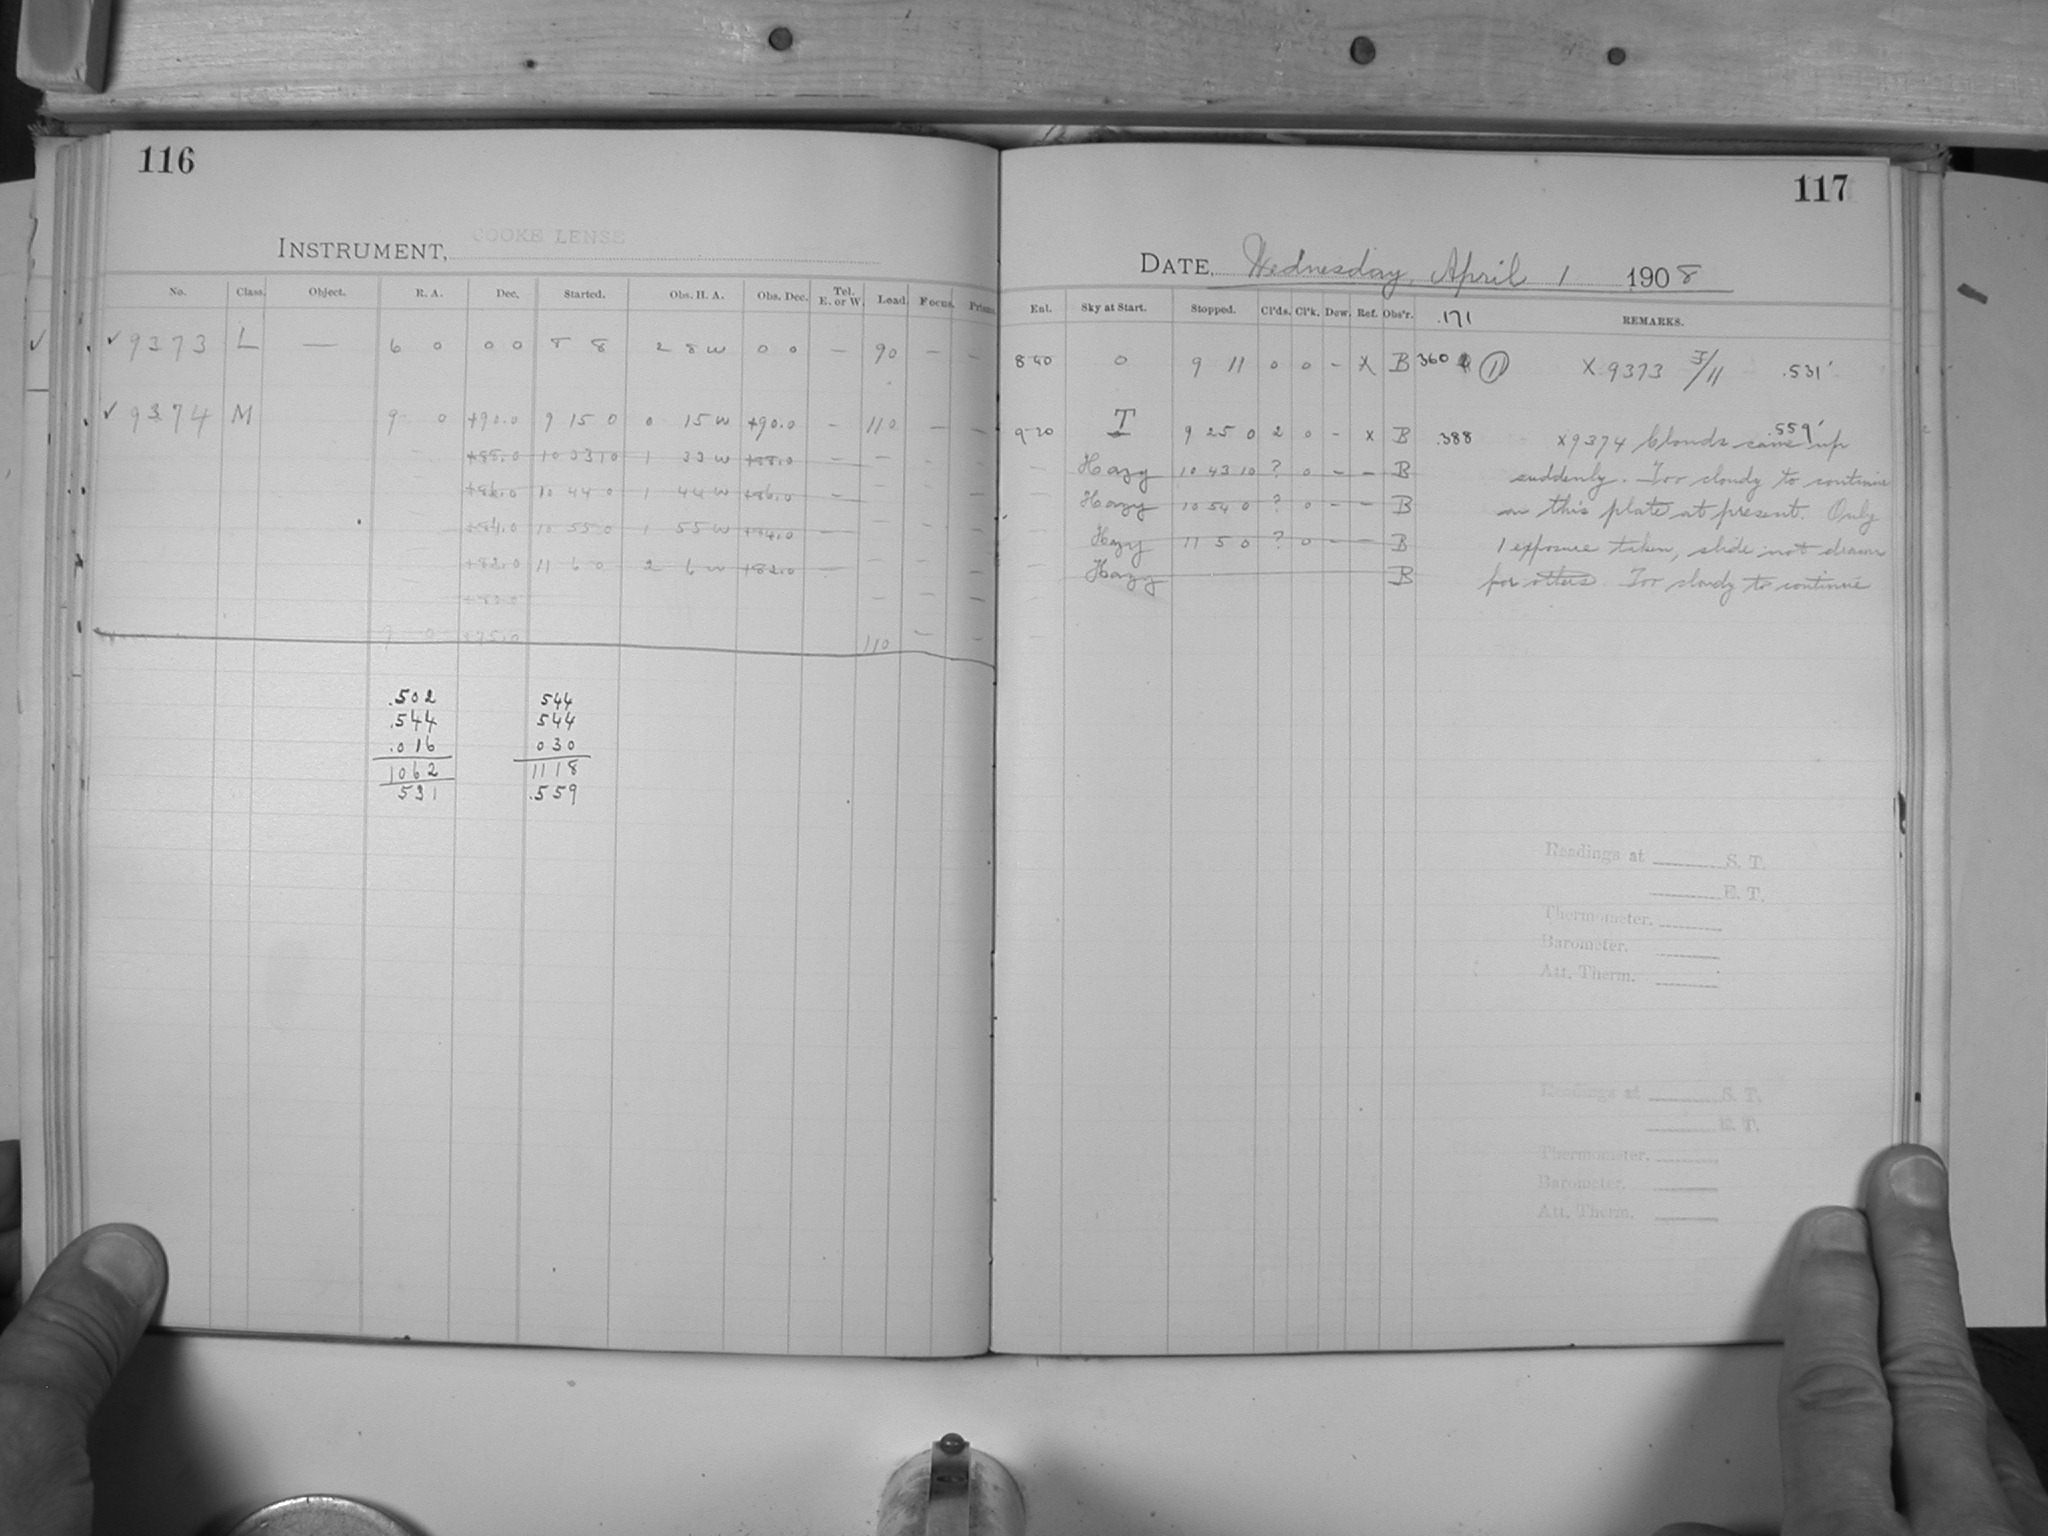 116
INSTRUMENT, COOKE LENSE
No. Class. Object. R. A. Dec. Started. Obs. H. A. Obs. Dec. Tel. E. or W. Load. Focus. Prisms
✓ 9373 L — 6 0 0 0 8 8 2 8 W 0 0 — 90 — —
✓ 9374 M 9 0 +90.0 9 15 0 0 15 W +90.0 — 110 — —
+88.0 10 33 10 1 33 W +88.0 — — — —
+86.0 10 44 0 1 44 W +86.0 — — — —
+84.0 10 55 0 1 55 W +84.0 — — — —
+82.0 11 6 0 2 6 W +82.0 — — — —
+80.0 — — —
9 0 +75.0 110 — —
.502 544
.544 544
.016 030
1062 1118
531 .559
117
DATE, Wednesday, April 1 1908
Ent. Sky at Start. Stopped. Cl'ds. Cl'k. Dew. Ref. Obs'r. .171 REMARKS.
8 40 0 9 11 0 0 – X B 360 (11) X 9373 3/11 .531'
9 20 T 9 25 0 2 0 – x B .388 .559'
x 9374 Clouds came up
— Hazy 10 43 10 ? 0 – – B suddenly. Too cloudy to continue
— Hazy 10 54 0 ? 0 – – B on this plate at present. Only
— Hazy 11 5 0 ? 0 – – B 1 exposure taken, slide not drawn
— Hazy B for others. Too cloudy to continue
Readings at S. T.
E. T.
Thermometer.
Barometer.
Att. Therm.
Readings at S. T.
E. T.
Thermometer.
Barometer.
Att. Therm.